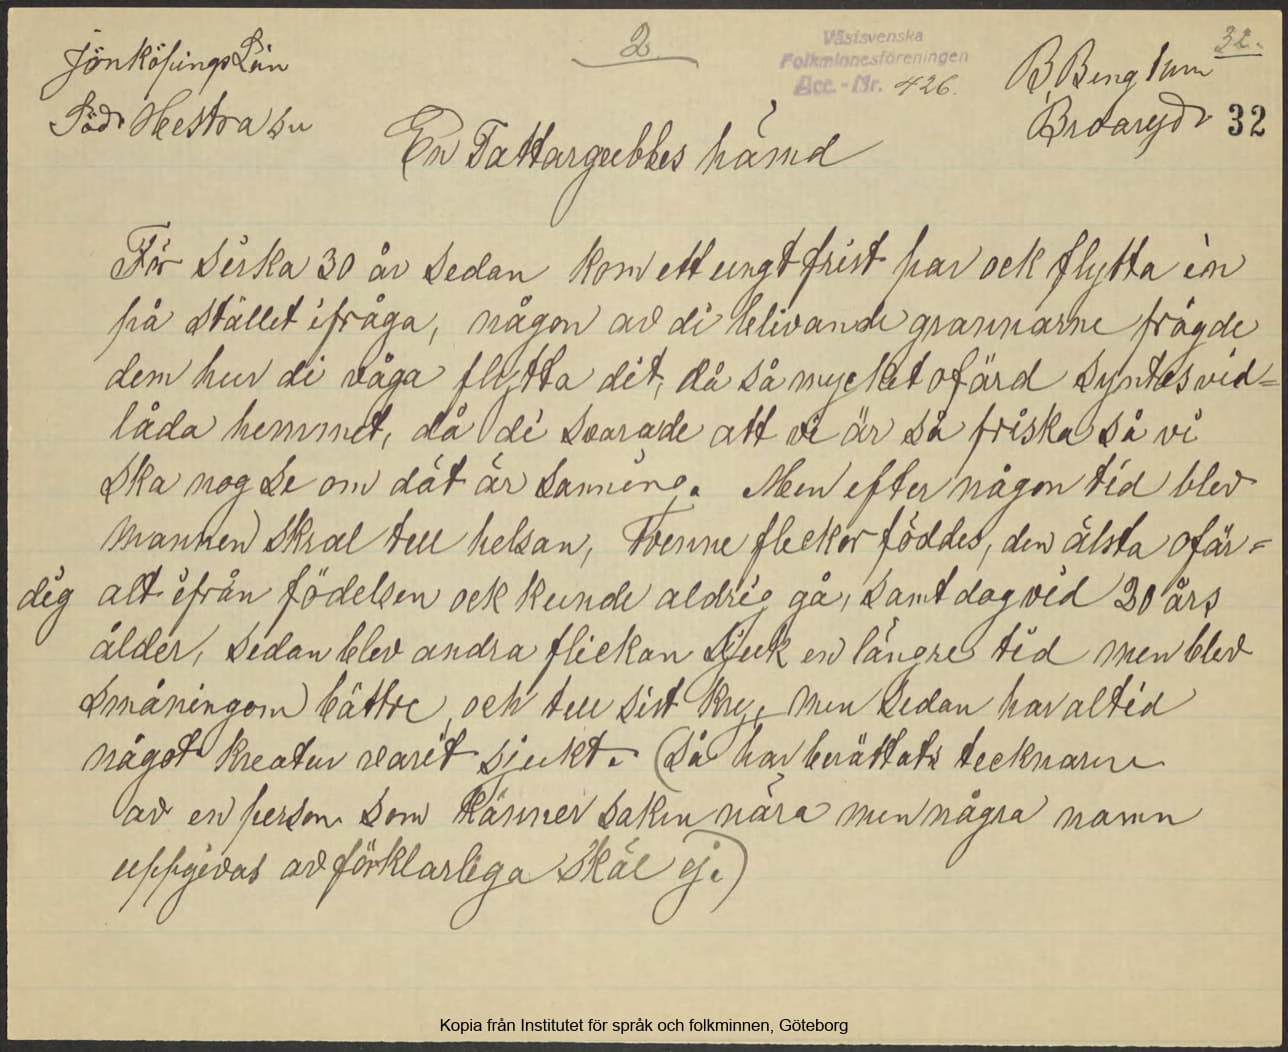 Jönköpings Län
Söd. Hestra sn
2
Västsvenska
Folkminnesföreningen
Acc.-Nr. 426.
32.
B. Bengtum
Broaryd
32
En Tattargubbes hämd
För sirka 30 år sedan kom ett ungt frist par ock flytta in
på stället ifråga, någon av di belivande grannarne frågde
dem hur di våga flytta dit, då så mycket ofärd syntes vid=
låda hemmet, då di svarade att vi är så friska så vi
ska nog se om dät är sanning. Men efter någon tid blev
mannen skral till helsan, Tvenne flickor föddes, den älsta ofär=
dig alt ifrån födelsen ock kunde aldrig gå, samt dog vid 30 års
ålder, sedan blev andra flickan sjuk en längre tid men blev
småningom bättre, och till sist kry, men sedan har altid
något kreatur varit sjukt. (Så har berättats tecknaren
av en person som känner saken nära men några namn
uppgivas av förklarliga skäl ej.)
Kopia från Institutet för språk och folkminnen, Göteborg